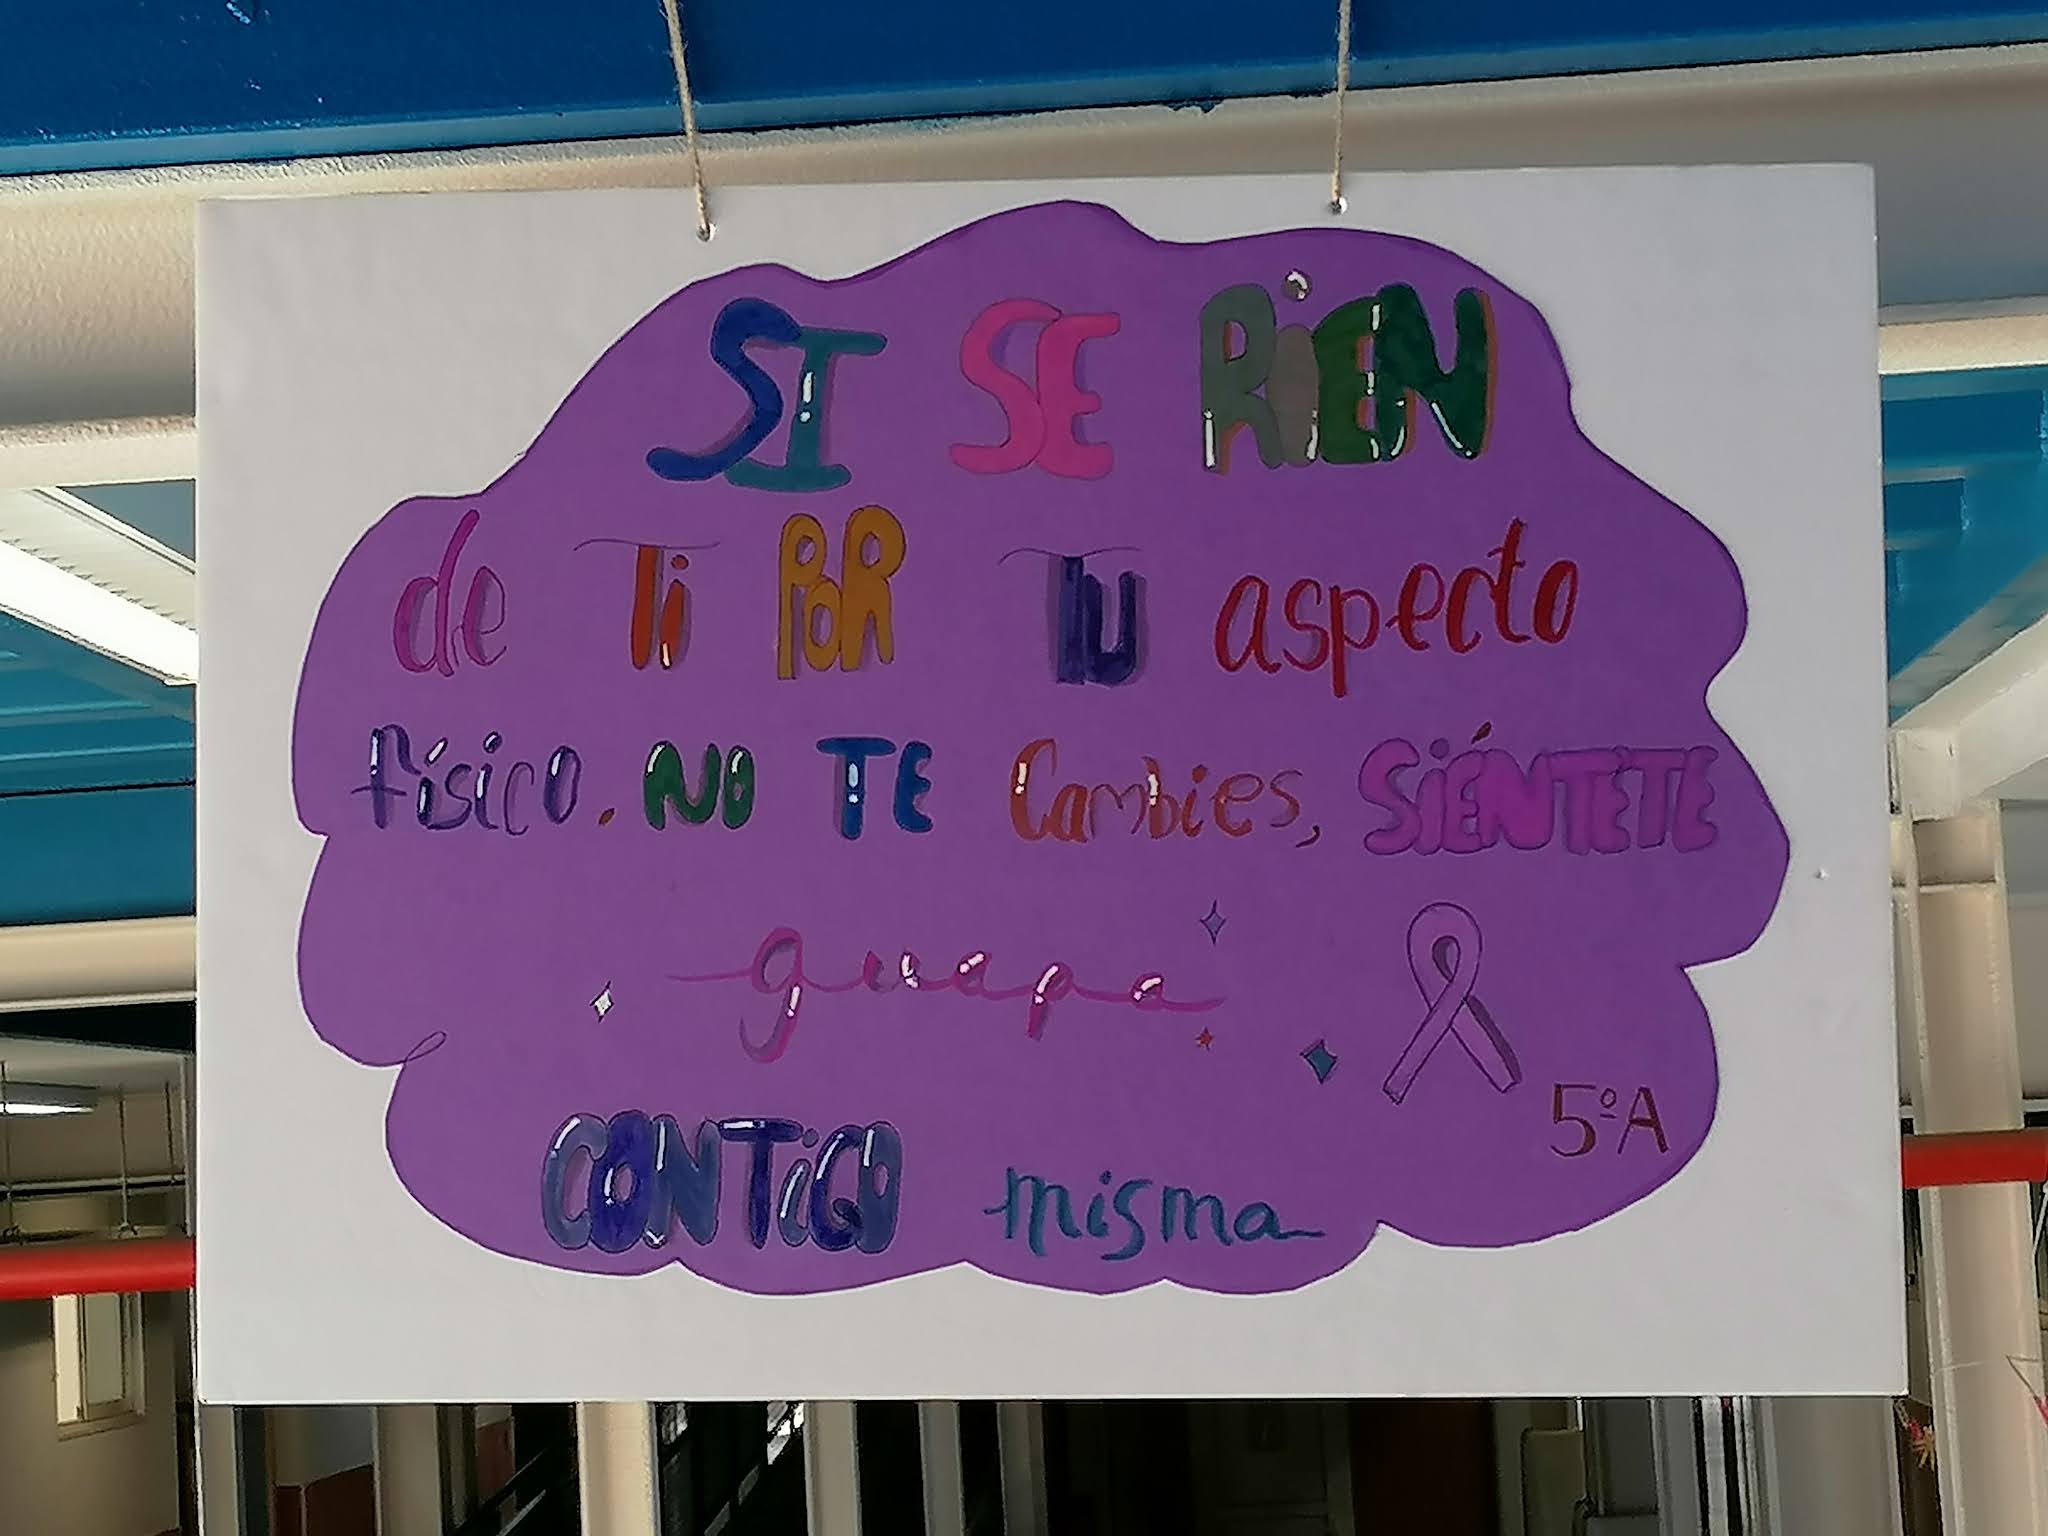 SI SE RiEN
de Ti PoR TU aspecto
físico. NO TE Cambies, SiÉNTETE
guapa
CONTiGO misma
5ºA